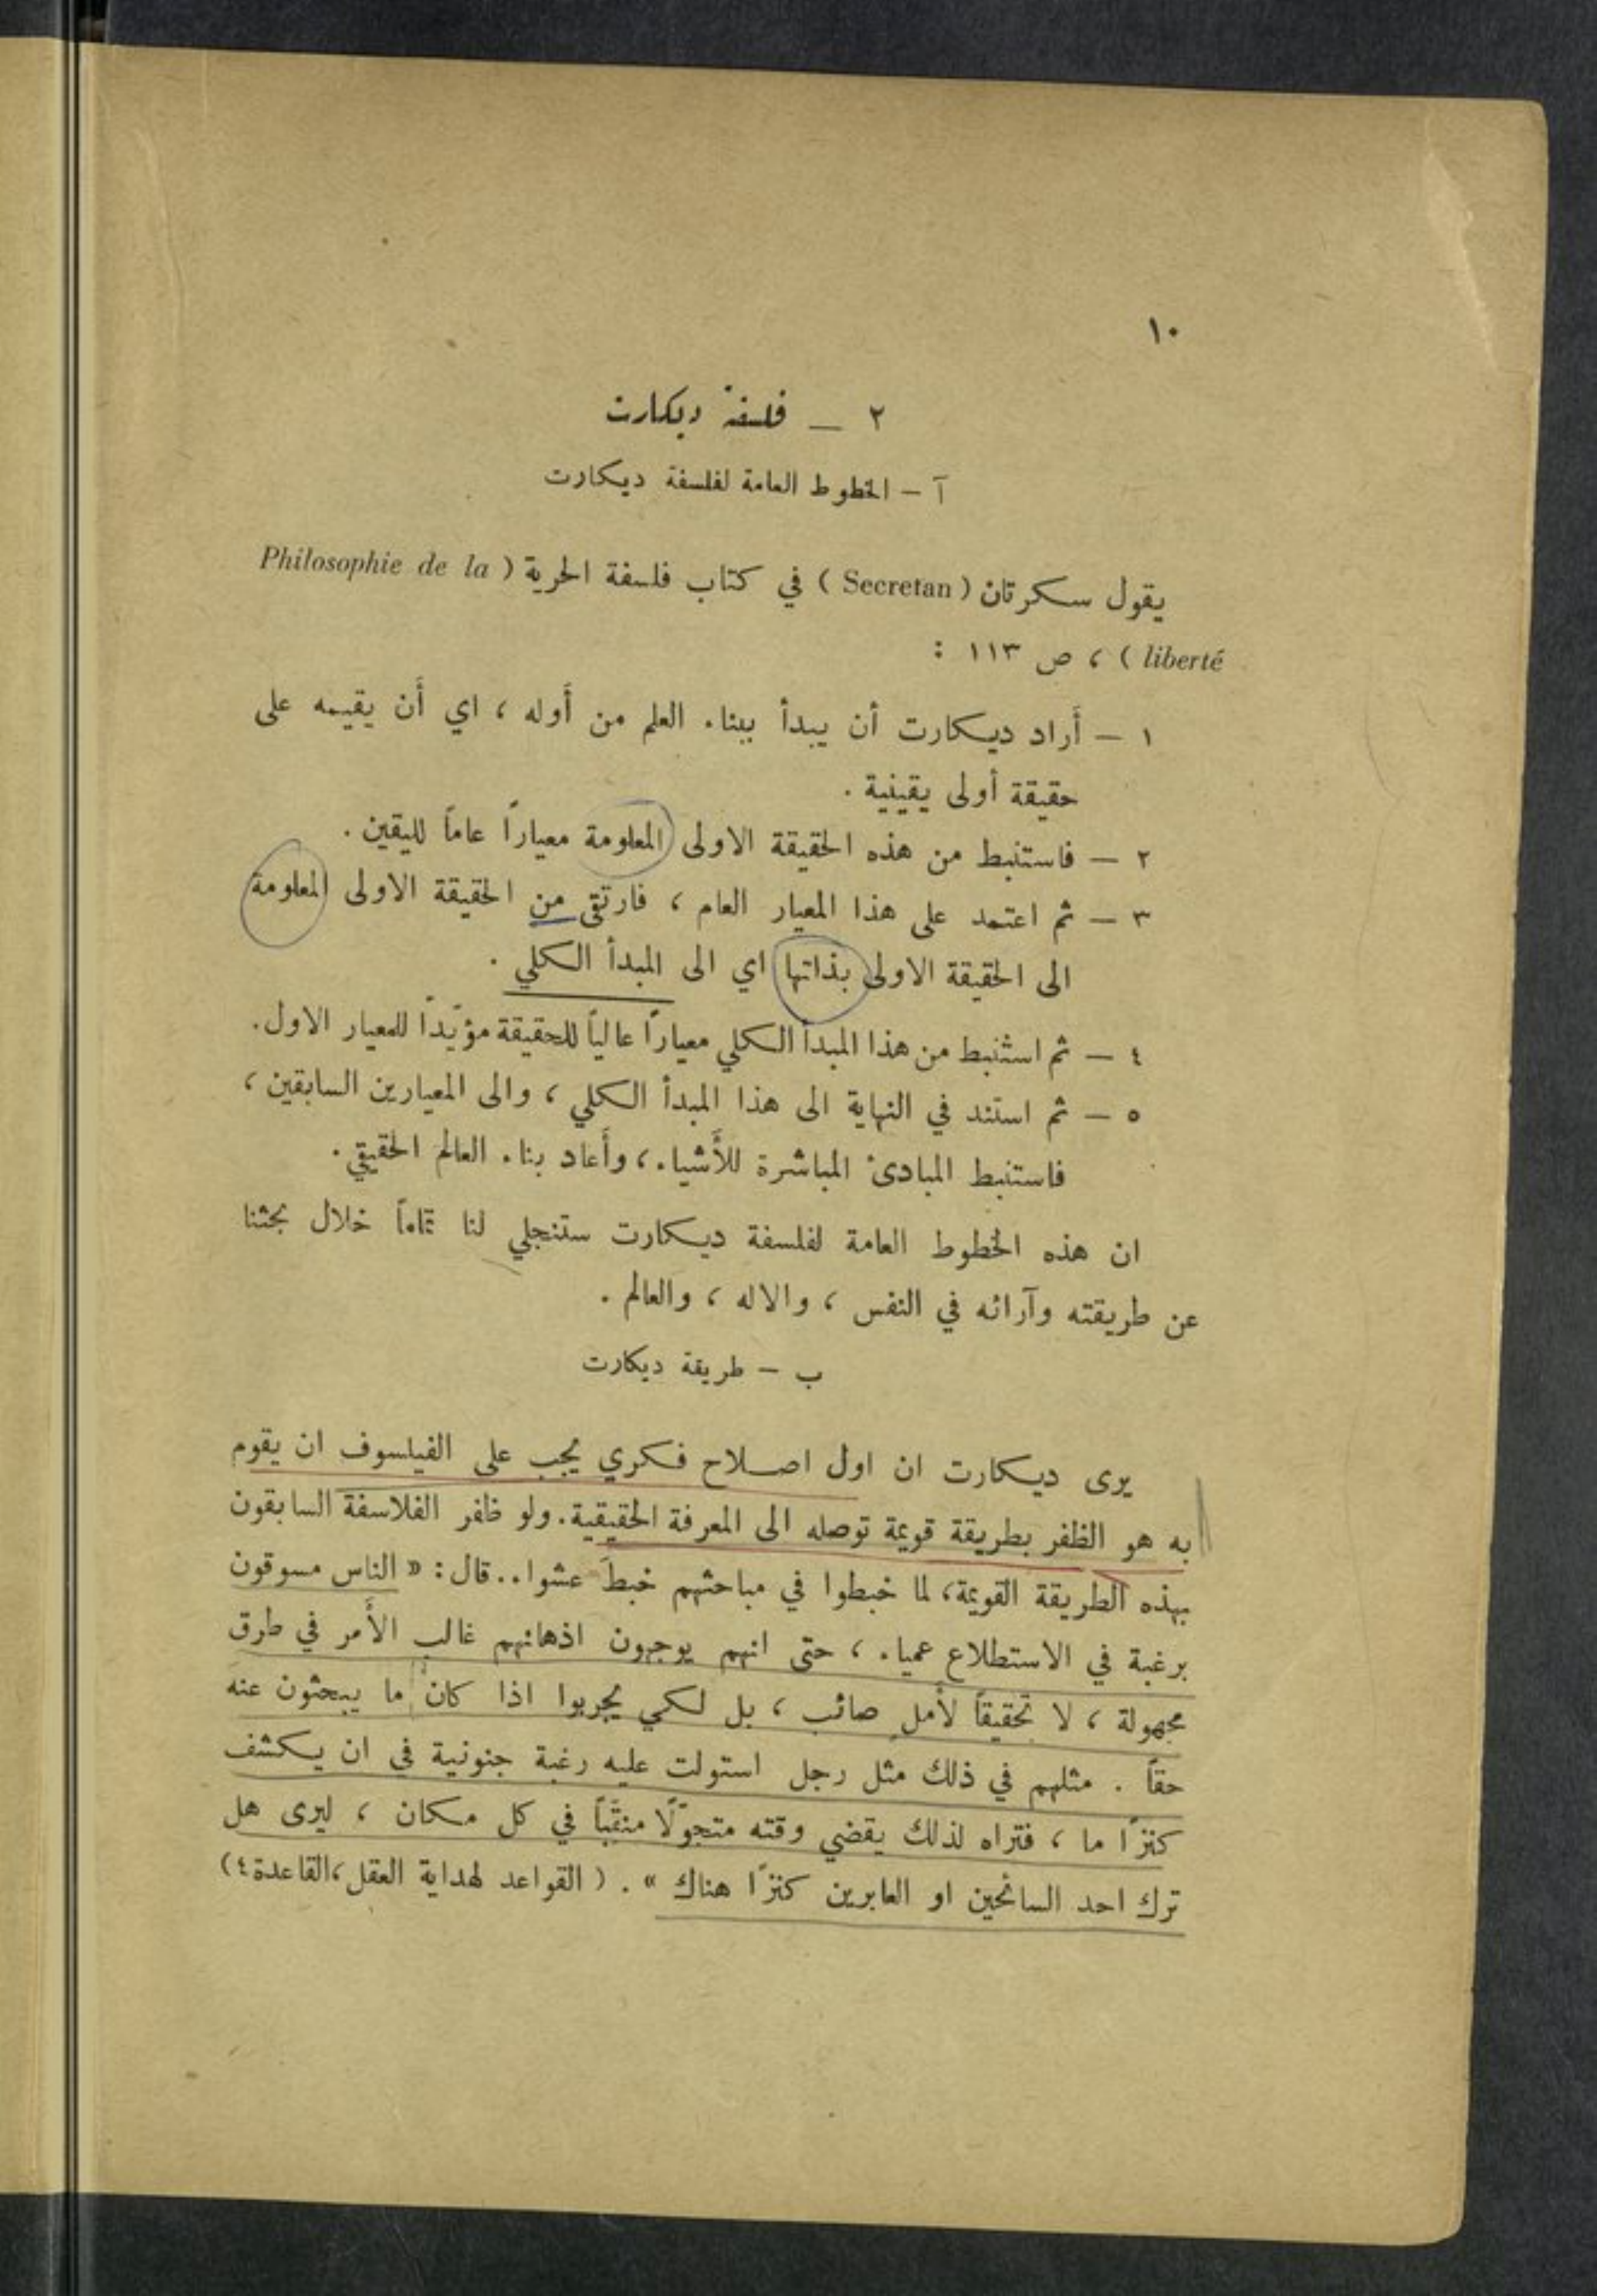 ١٠
٢ — فلسفة ديكارت
آ - الخطوط العامة لفلسفة ديكارت
يقول سكرتان ( Secretan ) في كتاب فلسفة الحرية ( Philosophie de la
liberté ) ، ص ١١٣ :
١ — أَراد ديكارت أن يبدأ ببناء العلم من أَوله ، اي أَن يقيمه على
حقيقة أولى يقينية .
٢ — فاستنبط من هذه الحقيقة الاولى المعلومة معياراً عاماً لليقين .
٣ — ثم اعتمد على هذا المعيار العام ، فارتقى من الحقيقة الاولى المعلومة
الى الحقيقة الاولى بذاتها اي الى المبدأ الكلي .
٤ — ثم استنبط من هذا المبدأ الكلي معياراً عالياً للحقيقة مؤيّداً للمعيار الاول.
٥ — ثم استند في النهاية الى هذا المبدأ الكلي ، والى المعيارين السابقين ،
فاستنبط المبادئ المباشرة للأَشياء ، وأَعاد بناء العالم الحقيقي .
ان هذه الخطوط العامة لفلسفة ديكارت ستنجلي لنا تماماً خلال بحثنا
عن طريقته وآرائه في النفس ، والاله ، والعالم .
ب - طريقة ديكارت
يرى ديكارت ان اول اصلاح فكري يجب على الفيلسوف ان يقوم
به هو الظفر بطريقة قويمة توصله الى المعرفة الحقيقية. ولو ظفر الفلاسفة السابقون
بهذه الطريقة القويمة، لما خبطوا في مباحثهم خبطَ عشواء. قال: « الناس مسوقون
برغبة في الاستطلاع عمياء ، حتى انهم يوجهون اذهانهم غالب الأَمر في طرق
مجهولة ، لا تحقيقاً لأَملٍ صائب ، بل لكي يجربوا اذا كان ما يبحثون عنه
حقاً . مثلهم في ذلك مثل رجل استولت عليه رغبة جنونية في ان يكشف
كنزاً ما ، فتراه لذلك يقضي وقته متجوّلاً منقّباً في كل مكان ، ليرى هل
ترك احد السائحين او العابرين كنزاً هناك » . ( القواعد لهداية العقل، القاعدة ٤)